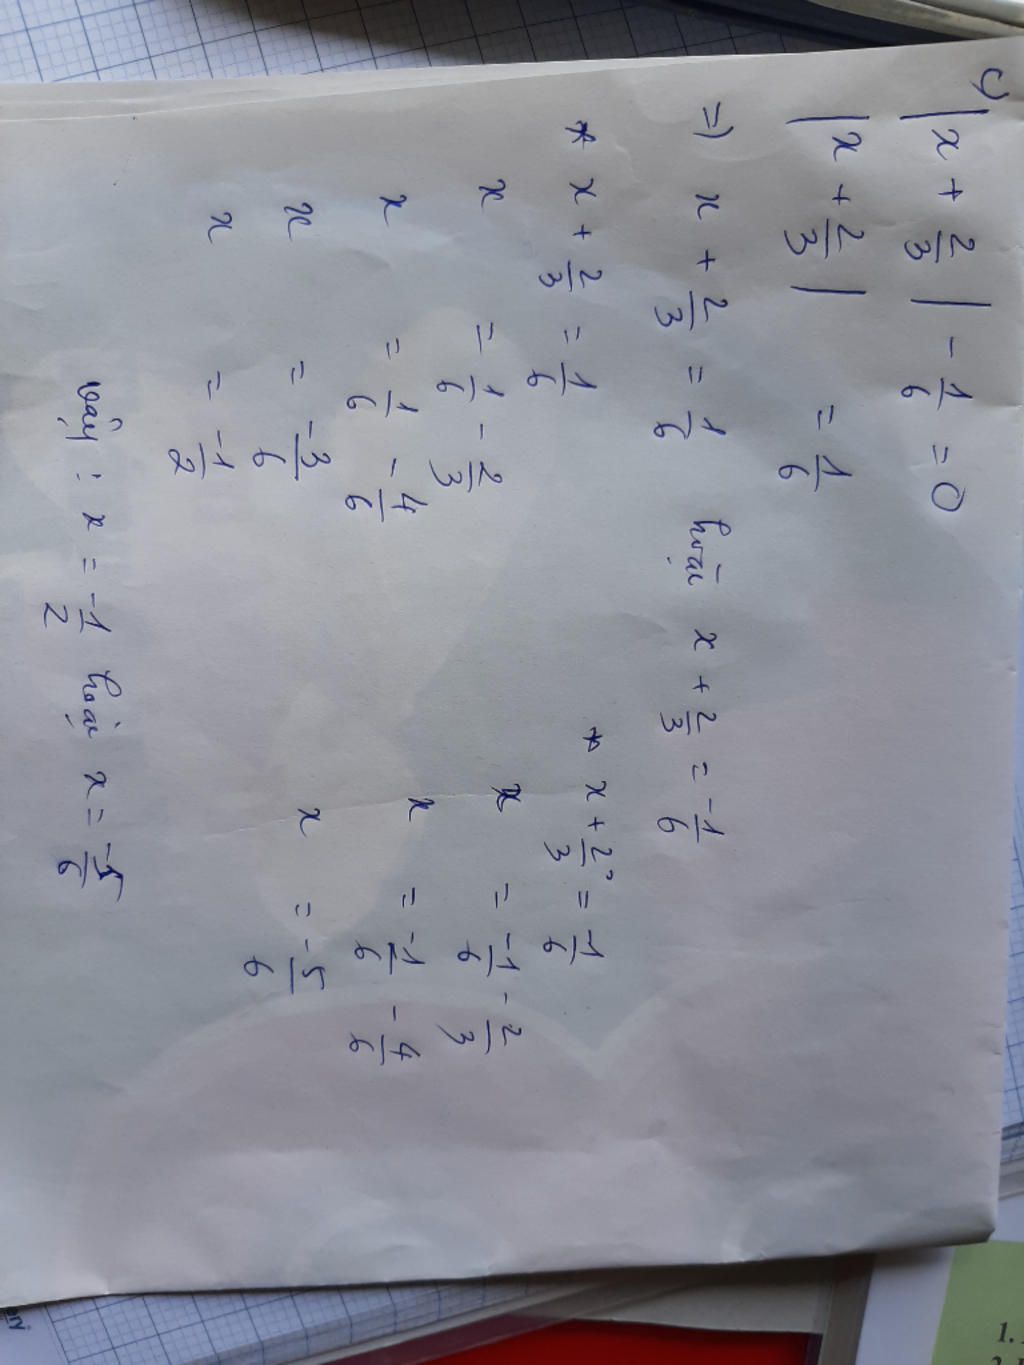 4) |x + 2/3| - 1/6 = 0
|x + 2/3| = 1/6
=) x + 2/3 = 1/6 hoặc x + 2/3 = -1/6
* x + 2/3 = 1/6
x = 1/6 - 2/3
x = 1/6 - 4/6
x = -3/6
x = -1/2
* x + 2/3 = -1/6
x = -1/6 - 2/3
x = -1/6 - 4/6
x = -5/6
Vậy : x = -1/2 hoặc x = -5/6
1.